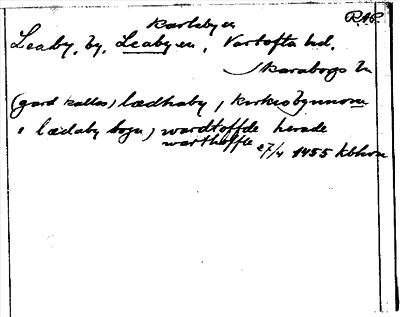 Karleby sn R.A.P.
Leaby, by, Leaby sn, Vartofta hd.
Skaraborgs ln
(gard kallas) lædhaby, kirkiobynnom
i lædaby sogn, wardtoffde herade
warthoffte 27/4 1455 Kbhvn